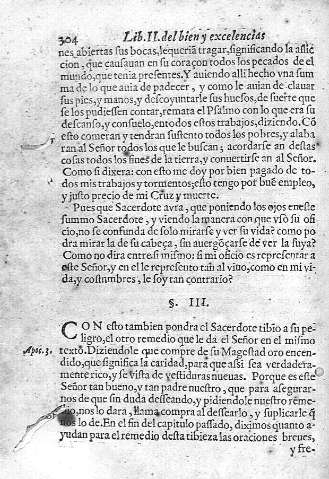 304 Lib. II. del bien y excelencias
nes abiertas sus bocas, le queriã tragar, significando la aflic
cion, que causauan en su coraçon todos los pecados de el
mundo, que tenia presentes. Y auiendo alli hecho vna sum
ma de lo que auia de padecer, y como le auian de clauar
sus pies, y manos, y descoyuntarle sus huesos, de suerte que
se los pudiessen contar, remata el Psalmo con lo que era su
descanso, y consuelo, en todos estos trabajos, diziendo. Cõ
esto comeran y tendran sustento todos los pobres, y alaba
ran al Señor todos los que le buscan; acordarse an destas
cosas todos los fines de la tierra, y conuertirse an al Señor.
Como si dixera: con esto me doy por bien pagado de to-
dos mis trabajos y tormentos; esto tengo por buē empleo,
y justo precio de mi Cruz y muerte.
Pues que Sacerdote aura, que poniendo los ojos en este
summo Sacerdote, y viendo la manera con que vsò su ofi
cio, no se confunda de solo mirarse y ver su vida? como po
dra mirar la de su cabeça, sin auergõçarse de ver la suya?
Como no dira entre si mismo: si mi oficio es representar a
este Señor, y en el le represento tan al viuo, como en mi vi-
da, y costumbres, le soy tan contrario?
§. III.
CON esto tambien pondra el Sacerdote tibio a su pe-
ligro, el otro remedio que le da el Señor en el mismo
Apoc. 3. texto. Diziendole que compre de su Magestad oro encen-
dido, que significa la caridad, para que assi sea verdadera-
mente rico, y se vista de vestiduras nueuas. Porque es este
Señor tan bueno, y tan padre nuestro, que para asegurar-
nos de que sin duda desseando, y pidiendole nuestro reme-
dio, nos lo dara, llama compra al dessearlo, y suplicarle q̃
nos lo de. En el fin del capitulo passado, diximos quanto a-
yudan para el remedio desta tibieza las oraciones breues,
y fre-